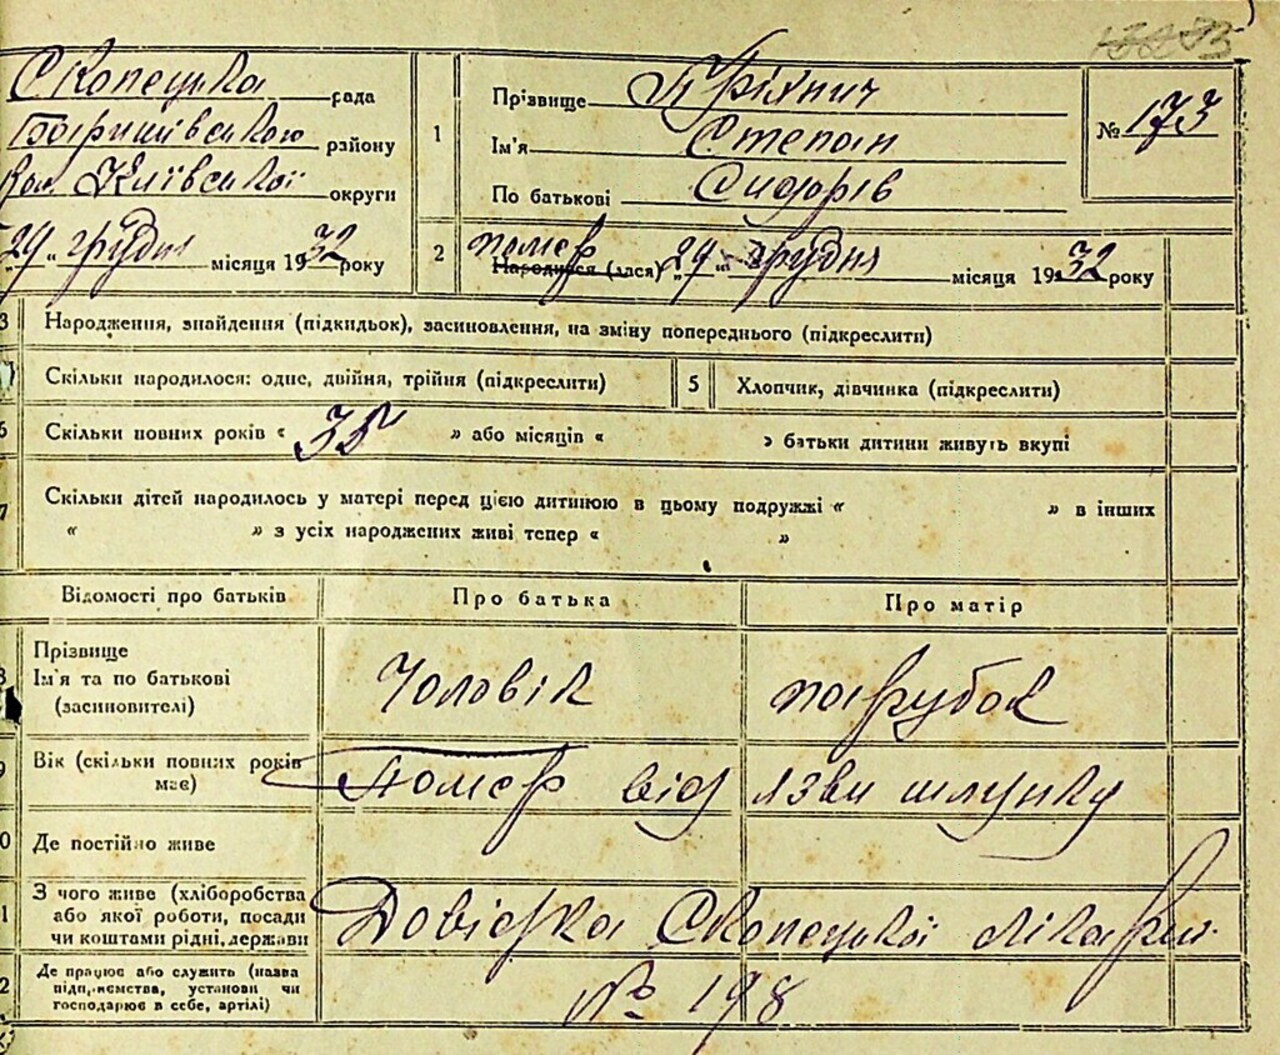 Скопецька рада
Баришівського району
Київської округи
„29“ грудня місяця 1932 року
1
Прізвище
Ім'я Степан
По батькові Сидорів
№ 173
2 помер Народився (лася) „29“ грудня місяця 1932 року
3 Народження, знайдення (підкидьок), засиновлення, на зміну попереднього (підкреслити)
Скільки народилося: одне, двійня, трійня (підкреслити) 5 Хлопчик, дівчинка (підкреслити)
6 Скільки повних років « 35 » або місяців « » батьки дитини живуть вкупі
7 Скільки дітей народилось у матері перед цією дитиною в цьому подружжі « » в інших
« » з усіх народжених живі тепер « »
Відомості про батьків Про батька Про матір
8 Прізвище
Ім'я та по батькові
(засиновителі)
Чоловік парубок
9 Вік (скільки повних років має)
Помер від язви шлунку
0 Де постійно живе
1 З чого живе (хліборобства
або якої роботи, посади
чи коштами рідні, держави
Довідка Скопецької лікарні
2 Де працює або служить (назва
підприємства, установи чи
господарює в себе, артілі)
№ 198